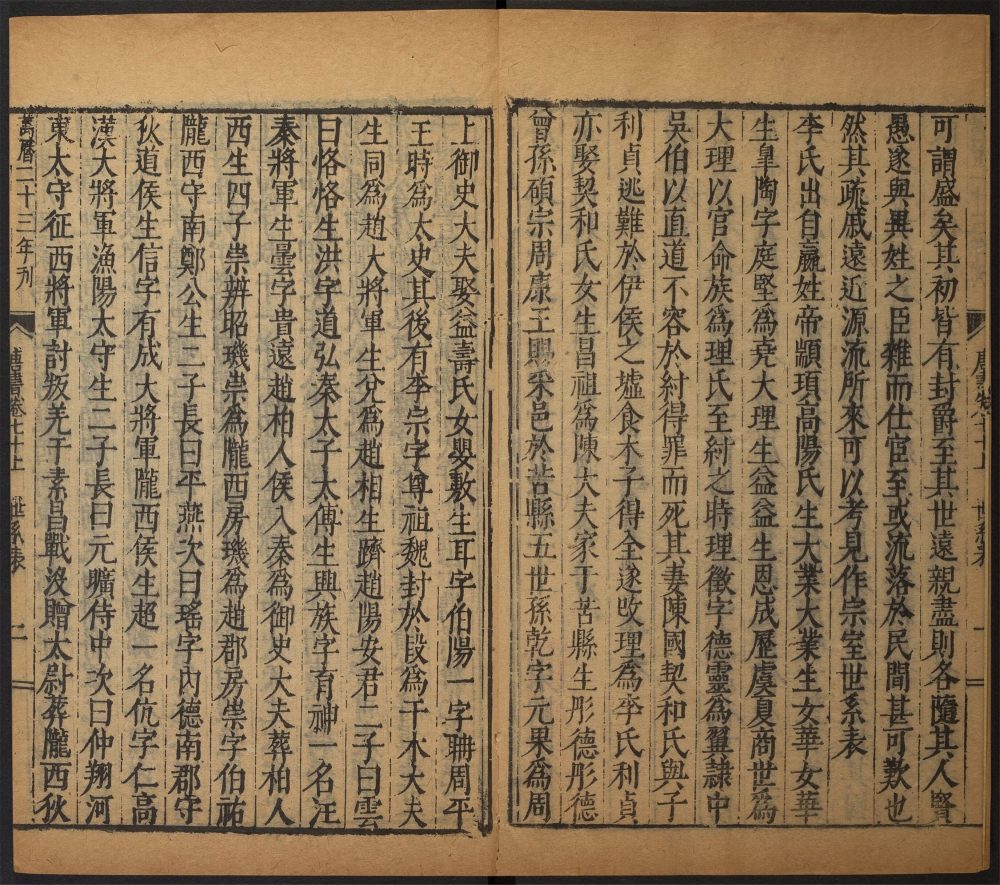 可謂盛矣其初皆有封爵至其世遠親盡則各隨其人賢
愚遂與異姓之臣雜而仕宦至或流落於民間甚可歎也
然其疏戚遠近源流所來可以考見作宗室世系表
李氏出自嬴姓帝顓頊高陽氏生大業大業生女華女華
生皇陶字庭堅為堯大理生益益生恩成歷虞夏商世為
大理以官命族為理氏至紂之時理徵字德靈為翼隸中
吳伯以直道不容於紂得罪而死其妻陳國契和氏與子
利貞逃難於伊侯之墟食木子得全遂攺理為李氏利貞
亦娶契和氏女生昌祖為陳大夫家于苦縣生彤德彤德
曾孫碩宗周康王賜采邑於苦縣五世孫乾字元果為周
上御史大夫娶益壽氏女嬰敷生耳字伯陽一字聃周平
王時為太史其後有李宗字尊祖魏封於段為干木大夫
生同為趙大將軍生兌為趙相生躋趙陽安君二子曰雲
曰恪恪生洪字道弘秦太子太傅生興族字育神一名汪
秦將軍生曇字貴遠趙柏人侯入秦為御史大夫葬柏人
西生四子崇辨昭璣崇為隴西房璣為趙郡房崇字伯祐
隴西守南鄭公生二子長曰平燕次曰瑤字內德南郡守
狄道侯生信字有成大將軍隴西侯生超一名伉字仁高
漢大將軍漁陽太守生二子長曰元曠侍中次曰仲翔河
東太守征西將軍討叛羌于素昌戰沒贈太尉葬隴西狄
萬曆二十三年刊
唐書卷七十上 世系表 二